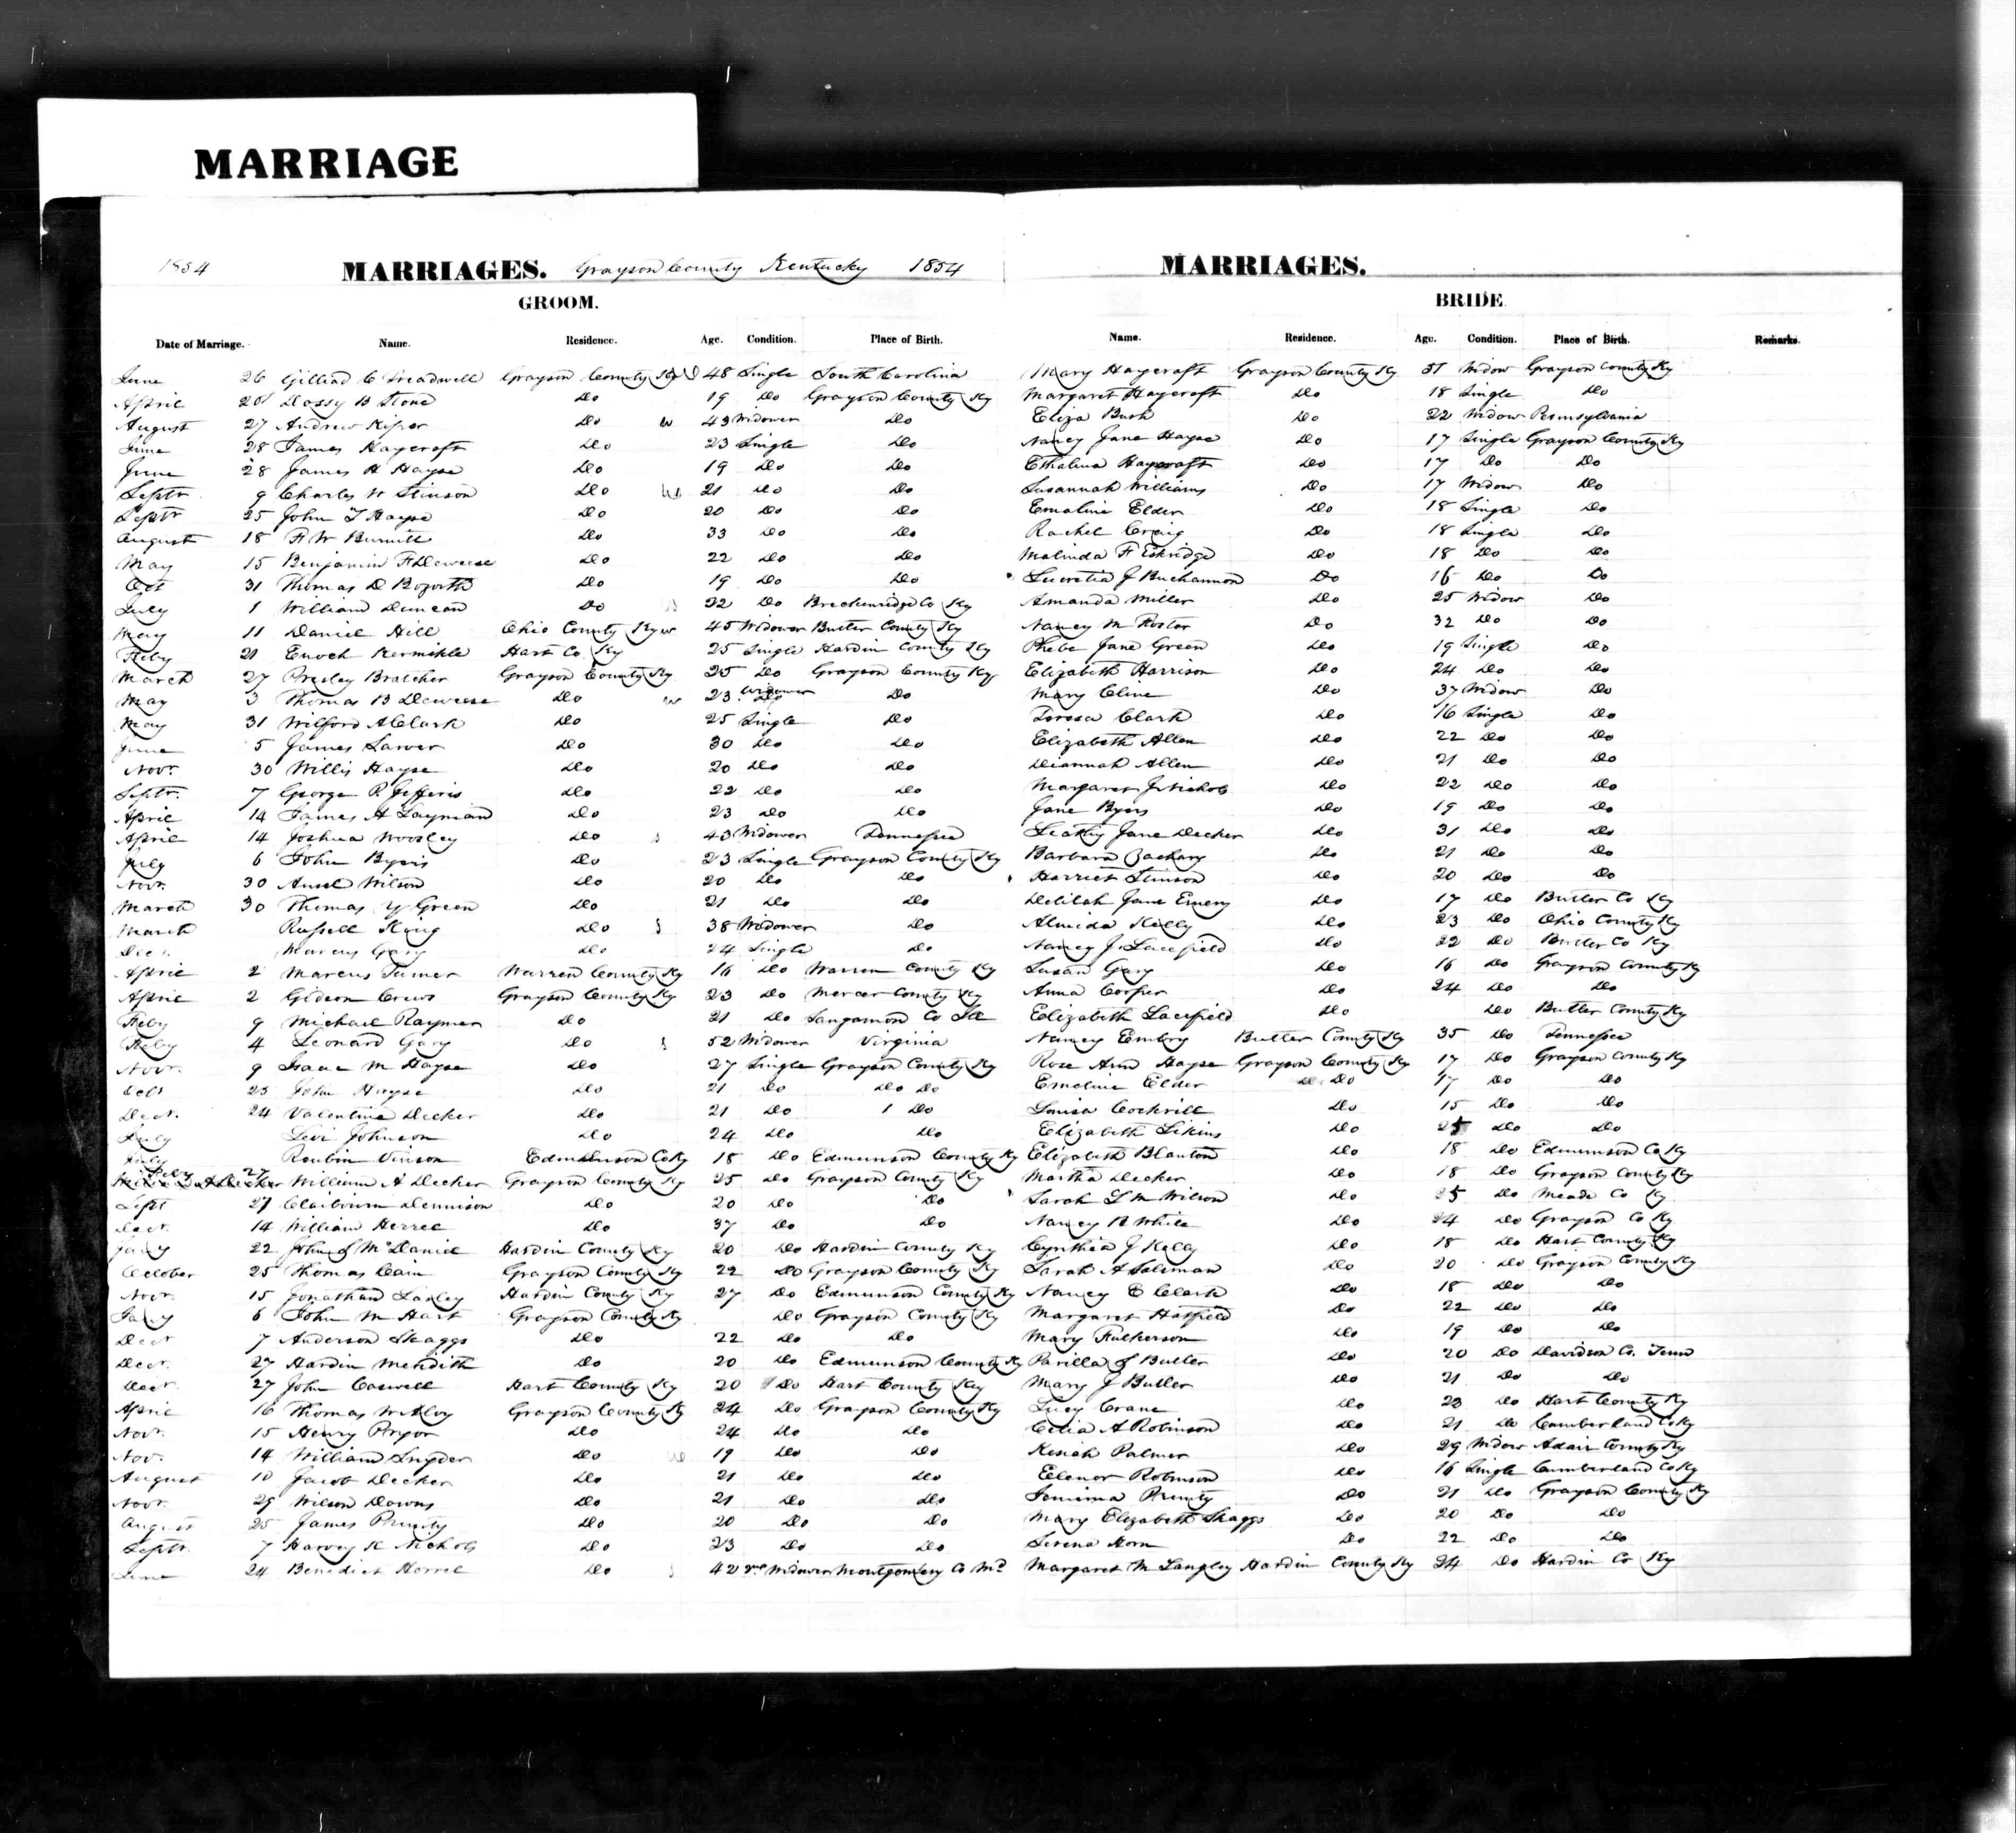 MARRIAGE
1854 MARRIAGES. Grayson County Kentucky 1854 MARRIAGES.
GROOM. BRIDE
Date of Marriage. Name. Residence. Age. Condition. Place of Birth. Name. Residence. Age. Condition. Place of Birth. Remarks.
June 26 Gilliad C Treadwell Grayson County Ky 48 Single South Carolina Mary Haycroft Grayson County Ky 51 Widow Grayson County Ky
April 20 Dossy B Stone Do 19 Do Grayson County Ky Margaret Haycroft Do 18 Single Do
August 27 Andrew Kiper Do w 43 Widower Do Eliza Bush Do 22 Widow Pennsylvania
June 28 James Haycroft Do 23 Single Do Nancy Jane Hayse Do 17 Single Grayson County Ky
June 28 James H Hayse Do 19 Do Do Ethalina Haycraft Do 17 Do Do
Septr 9 Charles W Stinson Do 21 Do Do Susannah Williams Do 17 Widow Do
Septr 25 John T Hayse Do 20 Do Do Emaline Elder Do 18 Single Do
August 18 F W Burnett Do 33 Do Do Rachel Craig Do 18 Single Do
May 15 Benjamin F Deweese Do 22 Do Do Malinda F Eskridge Do 18 Do Do
Oct 31 Thomas D Bozorth Do 19 Do Do Lucretia J Buchannon Do 16 Do Do
July 1 William Duncan Do 22 Do Breckenridge Co Ky Amanda Miller Do 25 Widow Do
May 11 Daniel Hill Ohio County Ky w 45 Widower Butler County Ky Nancy M Do 32 Do Do
Feby 21 Enoch Kermikle Hart Co Ky 25 Single Hardin County Ky Phebe Jane Green Do 19 Single Do
March 27 Presley Bratcher Grayson County Ky 25 Do Grayson County Ky Elizabeth Harrison Do 24 Do Do
May 3 Thomas B Deweese Do w 23 Widower Do Mary Cline Do 37 Widow Do
May 31 Wilford A Clark Do 25 Single Do Teresa Clark Do 16 Single Do
June 5 James Lawer Do 30 Do Do Elizabeth Allen Do 22 Do Do
Novr. 30 Willis Hayse Do 20 Do Do Diannah Allen Do 21 Do Do
Septr. 7 George R Jefferis Do 22 Do Do Margaret J Nichols Do 22 Do Do
April 14 James H Layman Do 23 Do Do Jane Byers Do 19 Do Do
April 14 Joshua Woosley Do 43 Widower Tennessee Jane Decker Do 31 Do Do
July 6 John Byers Do 23 Single Grayson County Ky Barbara Zachary Do 21 Do Do
Novr. 30 Ansel Wilson Do 20 Do Do Harriet Stinson Do 20 Do Do
March 30 Thomas Y Green Do 21 Do Do Delilah Jane Emery Do 17 Do Butler Co Ky
March Russell King Do 38 Widower Do Almida Kelly Do 23 Do Ohio County Ky
Dec. Marcus Gary Do 24 Single Do Nancy J. Lacefield Do 22 Do Butler Co Ky
April 2 Marcus Turner Warren County Ky 16 Do Warren County Ky Susan Gary Do 16 Do Grayson County Ky
April 2 Gideon Crews Grayson County Ky 23 Do Mercer County Ky Anna Cooper Do 24 Do Do
Feby 9 Michael Raymer Do 21 Do Sangamon Co Ill Elizabeth Lacefield Do Do Butler County Ky
Feby 4 Leonard Gary Do 52 Widower Virginia Nancy Embry Butler County Ky 35 Do Tennessee
Novr. 9 Isaac M Hayse Do 27 Single Grayson County Ky Rose Ann Hayse Grayson County Ky 17 Do Grayson County Ky
Oct 23 John Hayse Do 21 Do Do Do Emeline Elder Do Do 17 Do Do
Dect. 24 Valentine Decker Do 21 Do Do Louisa Cockrill Do 15 Do Do
July Levi Johnson Do 24 Do Do Elizabeth Likins Do 25 Do Do
July Reubin Vinson Edmunson Co Ky 18 Do Edmunson County Ky Elizabeth Blanton Do 18 Do Edmunson Co Ky
Feby 27 William A Decker Grayson County Ky 25 Do Grayson County Ky Martha Decker Do 18 Do Grayson County Ky
Sept 27 Claibourn Dennison Do 20 Do Do Sarah L M Wilson Do 25 Do Meade Co Ky
Dect. 14 William Herrel Do 37 Do Do Nancy B White Do 24 Do Grayson Co Ky
Jany 22 John J McDaniel Hardin County Ky 20 Do Hardin County Ky Cynthia J Kelly Do 18 Do Hart County Ky
October 25 Thomas Cain Grayson County Ky 22 Do Grayson County Ky Sarah A Do 20 Do Grayson County Ky
Novr. 15 Jonathan Laxley Hardin County Ky 27 Do Edmunson County Ky Nancy E Clark Do 18 Do Do
Jany 6 John M Hart Grayson County Ky Do Grayson County Ky Margaret Hatfield Do 22 Do Do
Dect 7 Anderson Skaggs Do 22 Do Do Mary Fulkerson Do 19 Do Do
Dect. 27 Hardin Meridith Do 20 Do Edmunson County Ky Parilla J Butler Do 20 Do Davidson Co. Tenn
Dect. 27 John Caswell Hart County Ky 20 Do Hart County Ky Mary J Butler Do 21 Do Do
April 16 Thomas W Alvy Grayson County Ky 24 Do Grayson County Ky Lucy Crane Do 23 Do Hart County Ky
Novr. 15 Henry Pryor Do 24 Do Do Celia A Robinson Do 21 Do Cumberland Co Ky
Nov. 14 William Snyder Do 19 Do Do Kesiah Palmer Do 29 Widow Adair County Ky
August 10 Jacob Decker Do 21 Do Do Elenor Robinson Do 16 Single Cumberland Co Ky
Novr. 29 Wilson Downs Do 21 Do Do Jemima Prunty Do 21 Do Grayson County Ky
August 25 James Prunty Do 20 Do Do Mary Elizabeth Skaggs Do 20 Do Do
Septr. 7 Harvey K Nichols Do 23 Do Do Serena Horn Do 22 Do Do
June 24 Benedict Horrel Do 42 Widower Montgomery Co Md Margaret M Langley Hardin County Ky 24 Do Hardin Co Ky